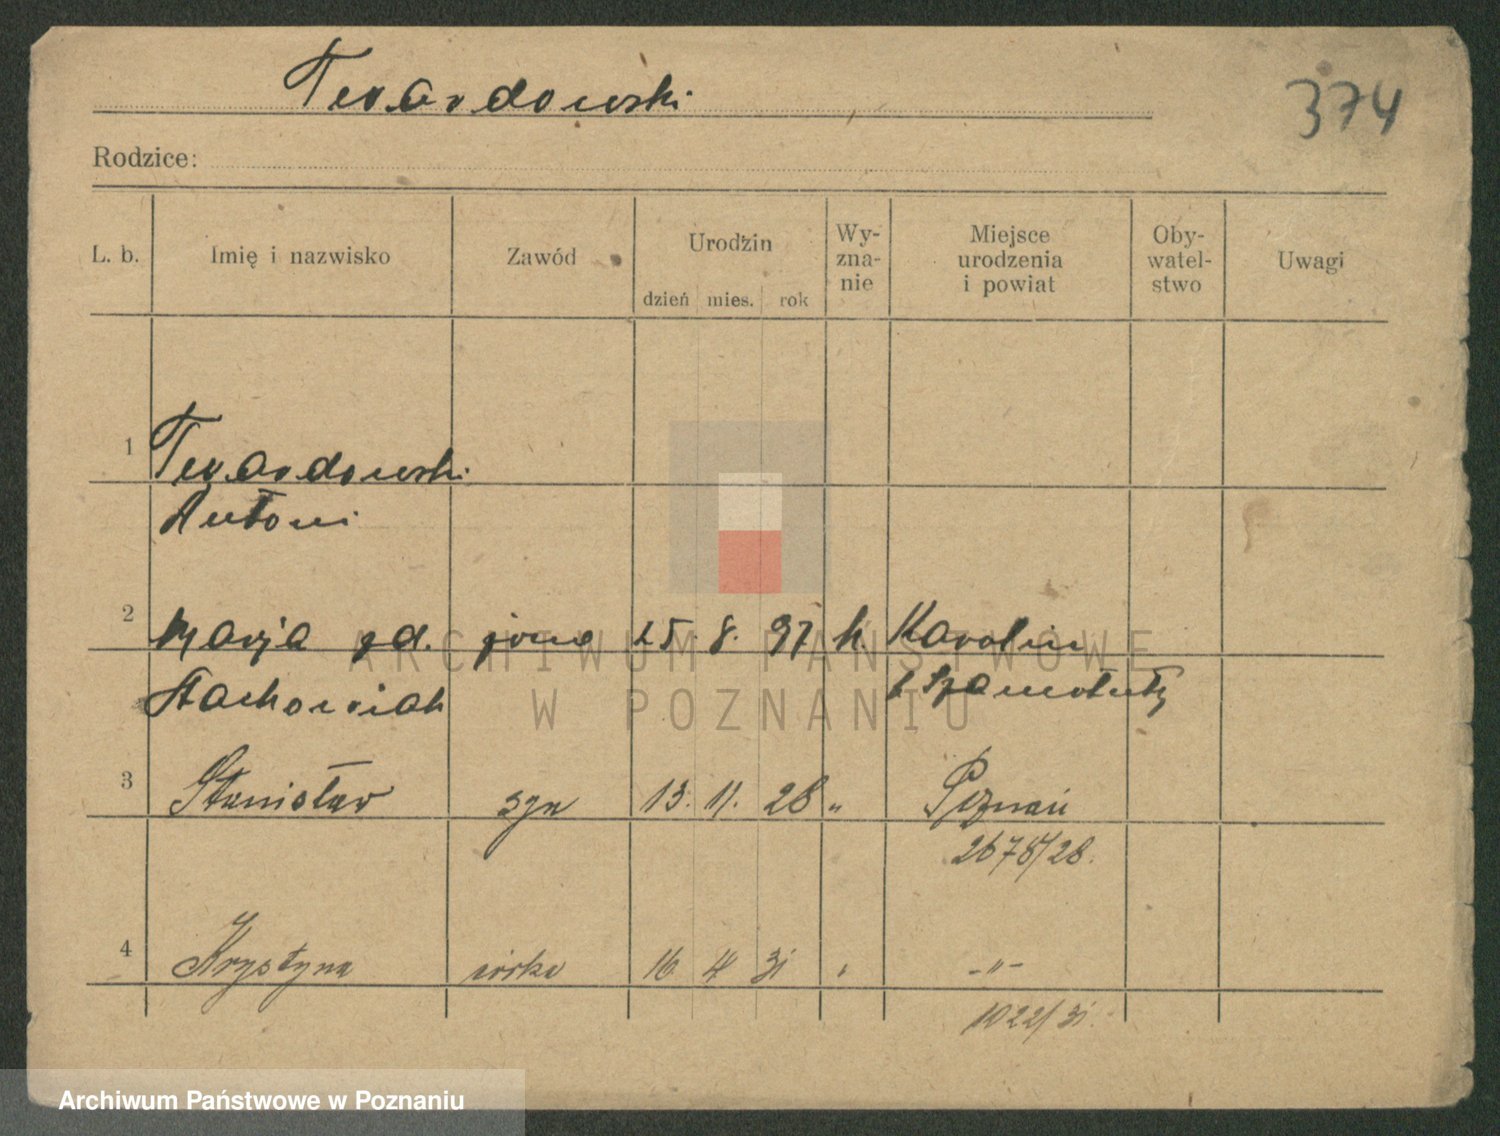 Twardowski
374
Rodzice:
L. b. Imię i nazwisko Zawód Urodzin Wy-zna-nie Miejsce urodzenia i powiat Oby-watel-stwo Uwagi
dzień mies. rok
1 Twardowski
Antoni
2 Marja zd. żona 25. 8. 97 k. Karolin
Stachowiak p. Szamotuły
3 Stanisław syn 13. 11. 28 " Poznań
2675/28.
4 Krystyna córka 16 4 31 " -"-
1022/31.
ARCHIWUM PAŃSTWOWE
W POZNANIU
Archiwum Państwowe w Poznaniu